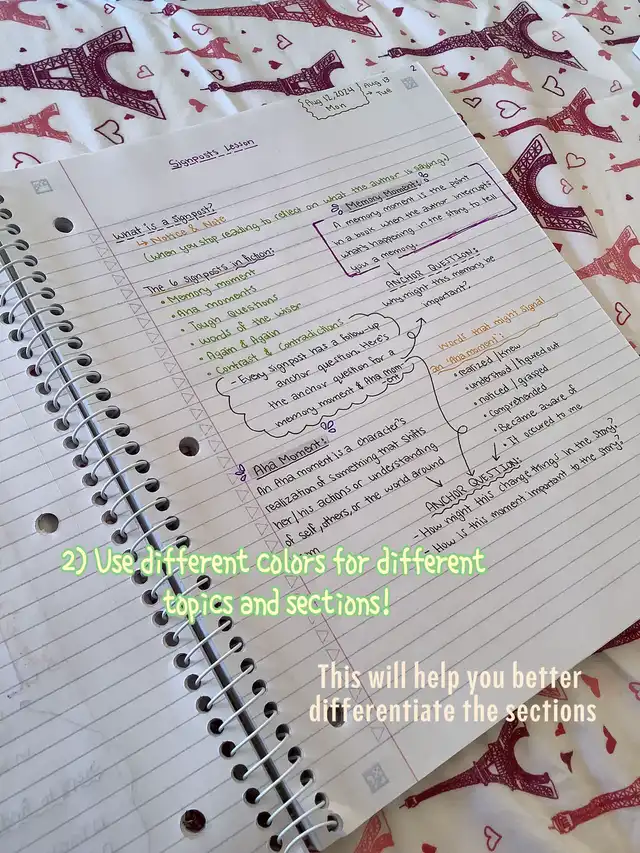 Aug 12, 2024
Mon
Aug 13
→ Tue
2
Signposts Lesson
What is a signpost?
↳ Notice & Note
(when you stop reading to reflect on what the author is saying.)
The 6 signposts in fiction:
• Memory moment
• Aha moments
• Tough Questions
• Words of the wiser
• Again & Again
• Contrast & Contradictions
- Every signpost has a follow-up
anchor question. Here's
the anchor question for a
memory moment & Aha mom-
ent
Aha Moment:
An Aha moment is a character's
realization of something that shifts
her/his actions or understanding
of self, others, or the world around
Memory Moment:
A memory moment is the point
in a book when the author interrupts
what's happening in the story to tell
you a memory.
ANCHOR QUESTION:
why might this memory be
important?
Words that might signal
an 'aha moment':
• realized/knew
• understood/figured out
• noticed/grasped
• Comprehended
• Became aware of
• It occured to me
ANCHOR QUESTION:
- How might this change things in the story?
- How is this moment important to the story?
2) Use different colors for different
topics and sections!
This will help you better
differentiate the sections